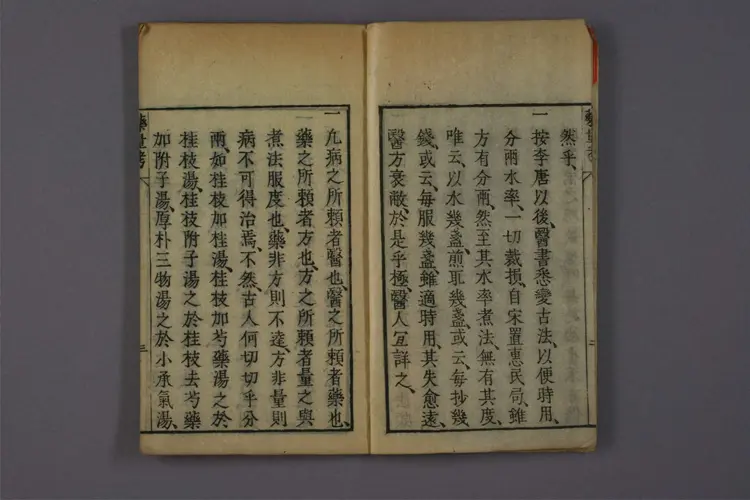 然乎
一按李唐以後、醫書悉變古法、以便時用、
分兩水率、一切裁損、自宋置惠民局、雖
方有分兩、然至其水率煮法、無有其度、
唯云、以水幾盞、煎耴幾盞、或云、每抄幾
錢、或云、每服幾盞、雖適時用、其失愈遠、
醫方衰敝、於是乎極、醫人冝詳之、
二
一凢病之所頼者醫也、醫之所頼者藥也、
藥之所頼者方也、方之所頼者量之與
煮法服度也、藥非方則不達、方非量則
病不可得治焉、不然古人何切切乎分
兩、如桂枝加桂湯、桂枝加芍藥湯之於
桂枝湯、桂枝附子湯之於桂枝去芍藥
加附子湯、厚朴三物湯之於小承氣湯、
藥量考
三